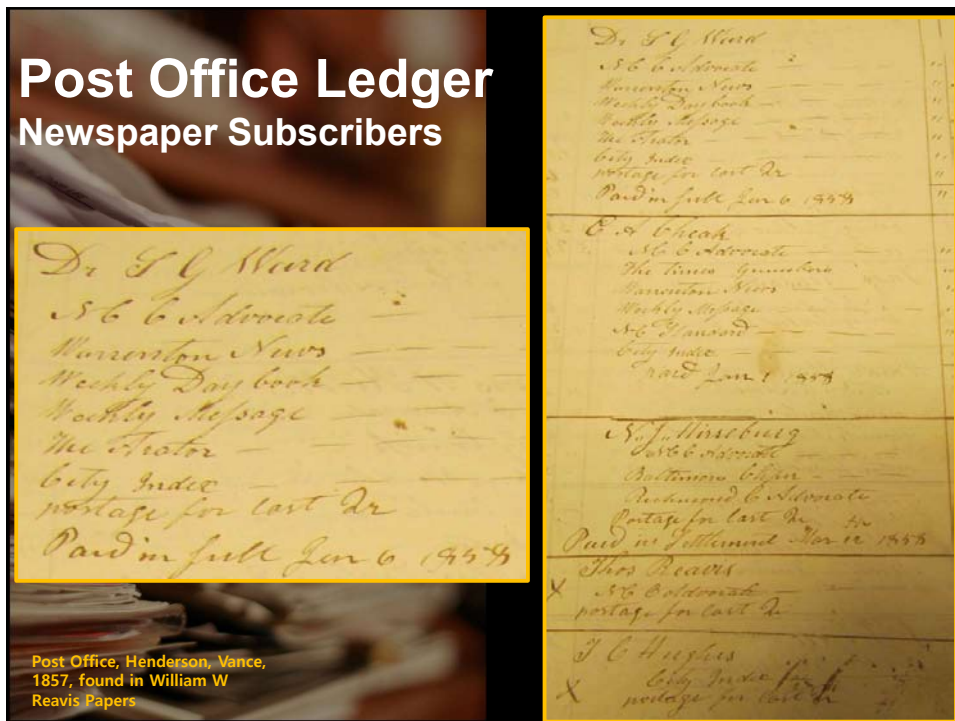 Post Office Ledger
Newspaper Subscribers
Dr S G Ward
N C C Advocate
Warrenton News
Weekly Day book
Weekly Message
The Arator
City Index
postage for last Qr
Paid in full Jan 6 1858
Post Office, Henderson, Vance,
1857, found in William W
Reavis Papers
Dr S G Ward
N C C Advocate
Warrenton News
Weekly Day book
Weekly Message
The Arator
City Index
postage for last Qr
Paid in full Jan 6 1858
E A Cheak
N C C Advocate
The Times Greensboro
Warrenton News
Weekly Message
N C Standard
City Index
paid Jan 1 1858
N. J.
N C C Advocate
Baltimore
Richmond C Advocate
Postage for last Qr
Paid in Settlement Mar 12 1858
Thos Reavis
X N C Advocate
postage for last Qr
T C Hughes
City Index
X postage for last Qr